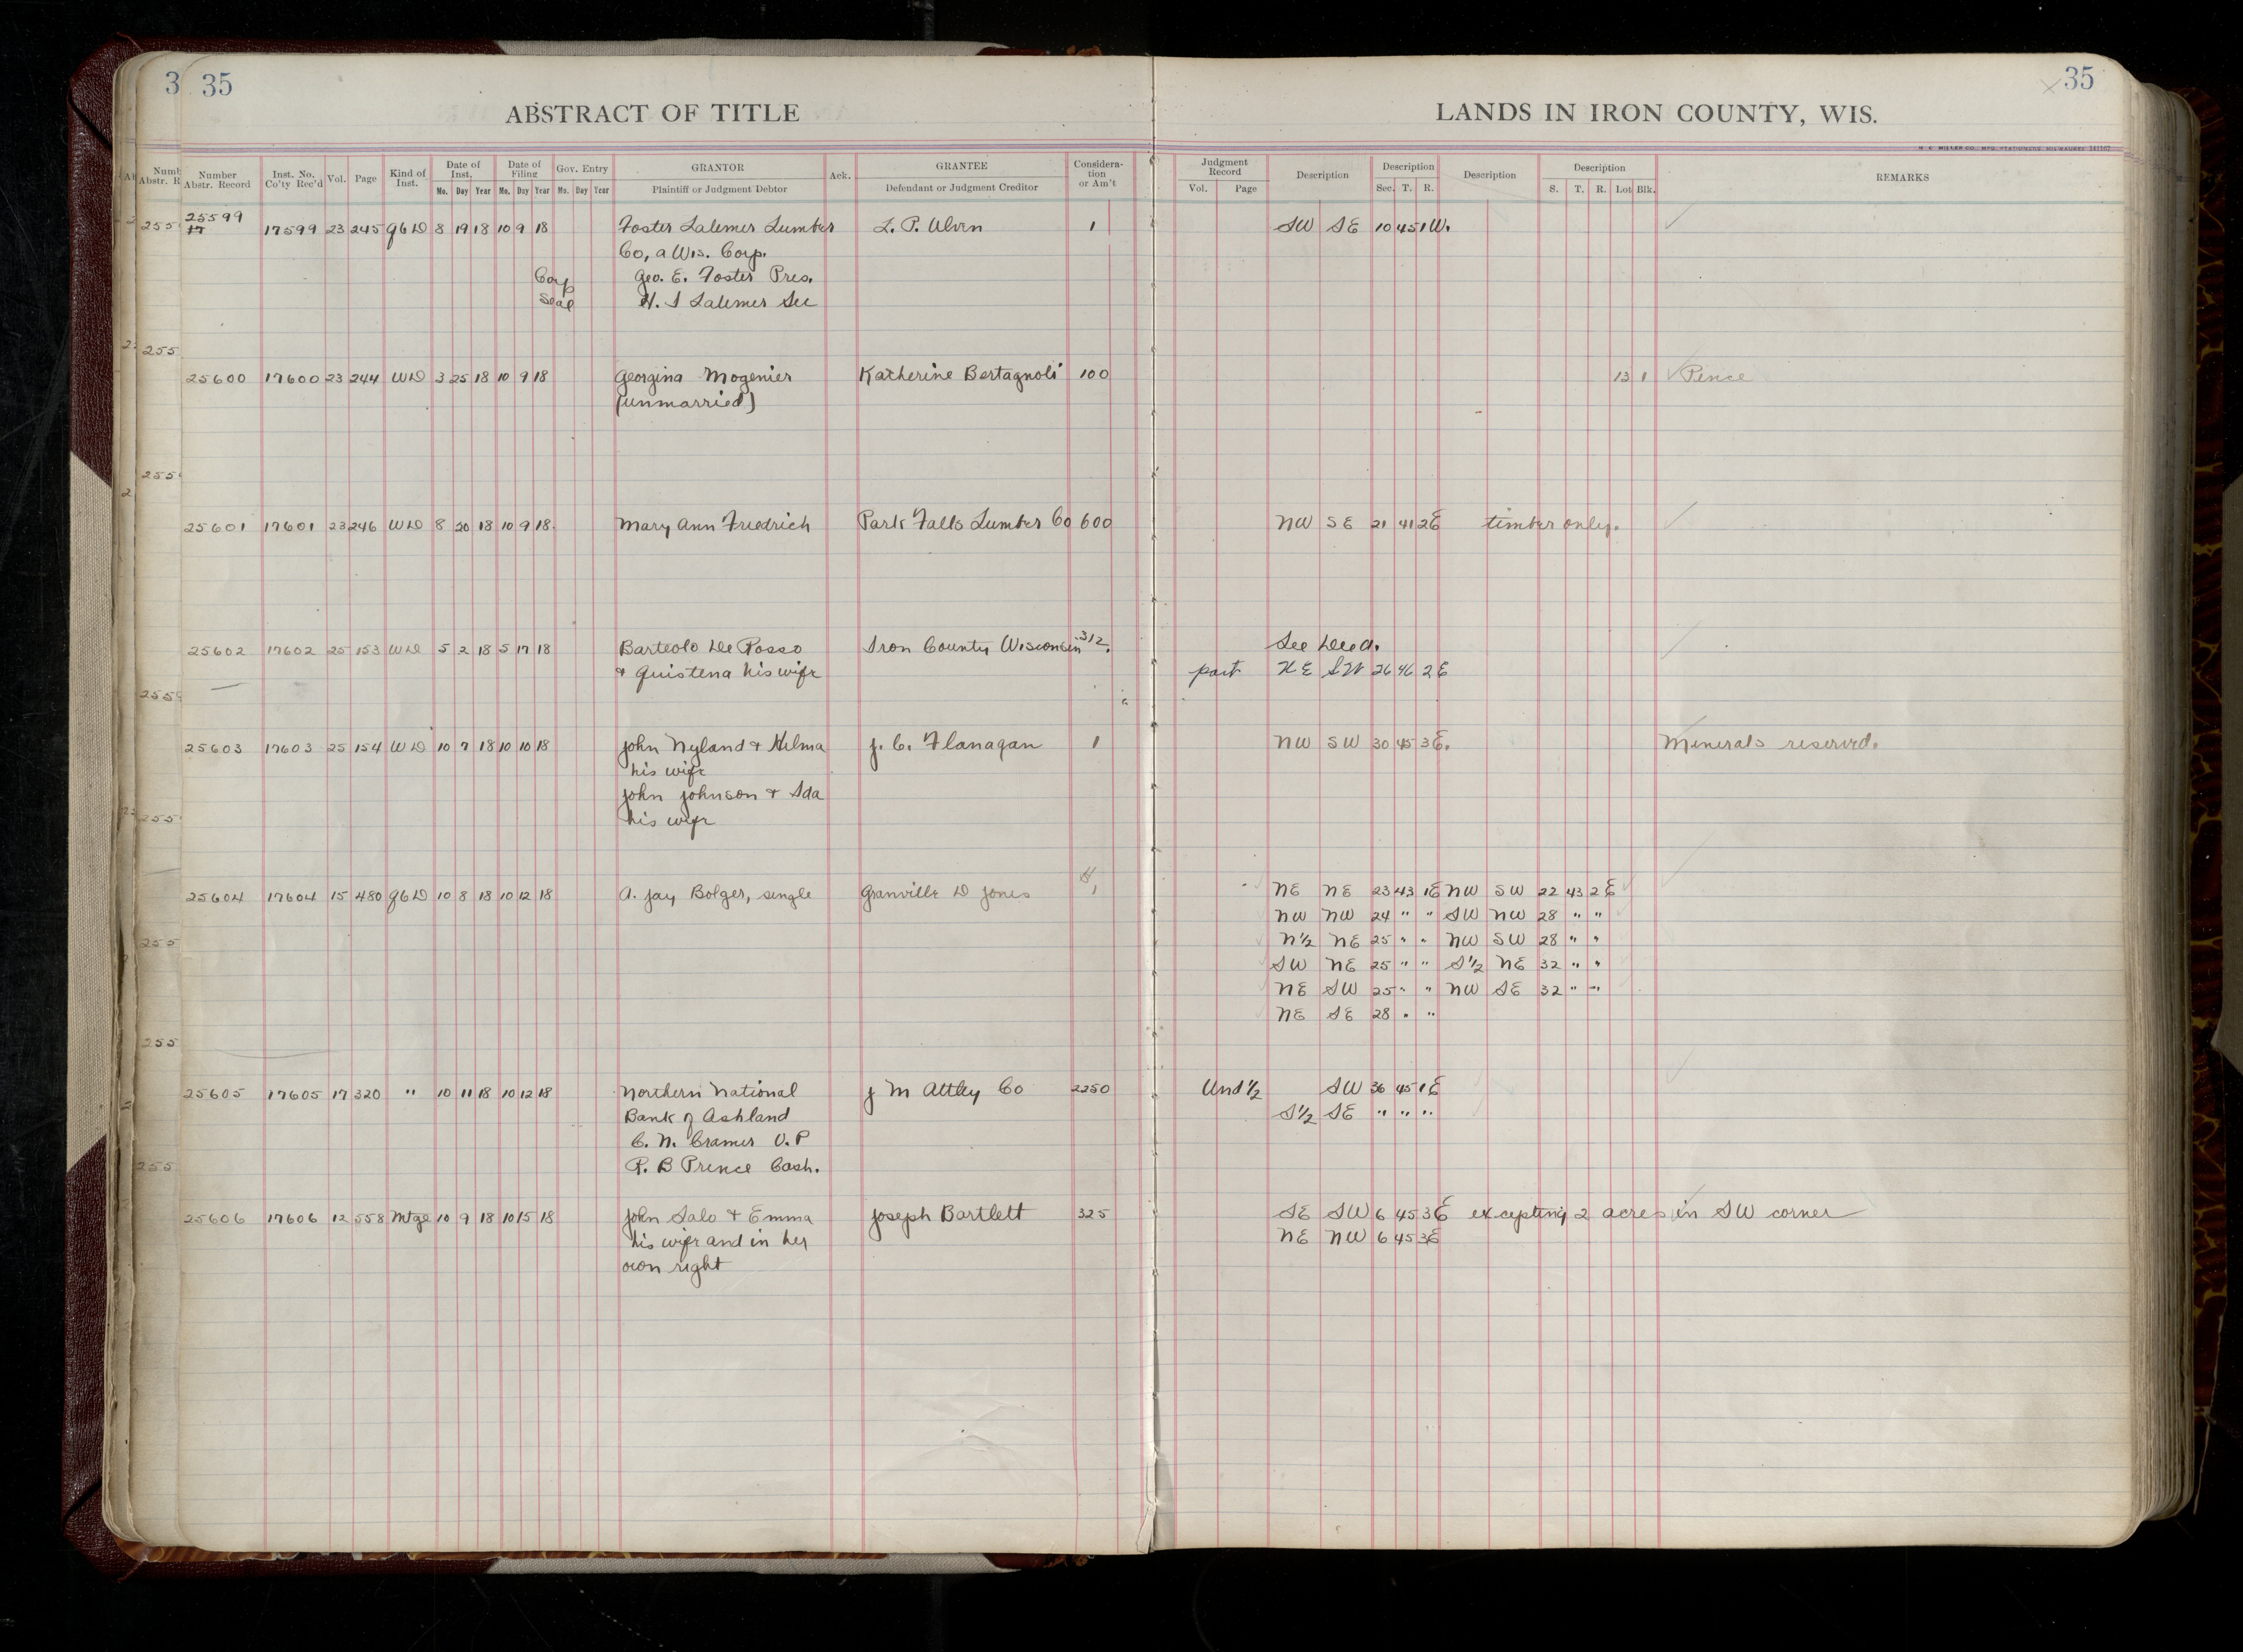 3 35
35
ABSTRACT OF TITLE
LANDS IN IRON COUNTY, WIS.
Number Abstr. Record Inst. No. Co'ty Rec'd Vol. Page Kind of Inst. Date of Inst. Date of Filing Gov. Entry GRANTOR Ack. GRANTEE Considera-tion or Am't Judgment Record Description Description Description Description REMARKS
Mo. Day Year Mo. Day Year Mo. Day Year Plaintiff or Judgment Debtor Defendant or Judgment Creditor Vol. Page Sec. T. R. S. T. R. Lot Blk.
25599
17599 23 245 QCD 8 19 18 10 9 18 Foster Latimer Lumber L. P. Alvin 1 SW SE 10 45 1W.
Co, a Wis. Corp.
Corp Geo. E. Foster Pres.
Seal H. S Latimer Sec
25600 17600 23 244 WD 3 25 18 10 9 18 Georgina Mogenier Katherine Bertagnoli 100 13 1 Pence
(unmarried)
25601 17601 23 246 WD 8 20 18 10 9 18. Mary Ann Friedrich Park Falls Lumber Co 600 NW SE 21 41 2E timber only.
25602 17602 25 153 WD 5 2 18 5 17 18 Barteolo De Rosso Iron County Wisconsin 312. See Deed.
& Guistena his wife part NE SW 26 46 2E
25603 17603 25 154 WD 10 7 18 10 10 18 John Nyland & Hilma J. C. Flanagan 1 NW SW 30 45 3E. Minerals reserved.
his wife
John Johnson & Ida
his wife
25604 17604 15 480 QCD 10 8 18 10 12 18 A. Jay Bolger, single Granville D Jones 1 NE NE 23 43 1E NW SW 22 43 2E
NW NW 24 " " SW NW 28 " "
N½ NE 25 " " NW SW 28 " "
SW NE 25 " " S½ NE 32 " "
NE SW 25 " " NW SE 32 " "
NE SE 28 " "
25605 17605 17 320 " 10 11 18 10 12 18 Northern National J M Attley Co 2250 Und ½ SW 36 45 1E
Bank of Ashland S½ SE " " "
C. N. Cramer V. P
R. B Prince Cash.
25606 17606 12 558 Mtge 10 9 18 10 15 18 John Salo & Emma Joseph Bartlett 325 SE SW 6 45 3E excepting 2 acres in SW corner
his wife and in her NE NW 6 45 3E
own right